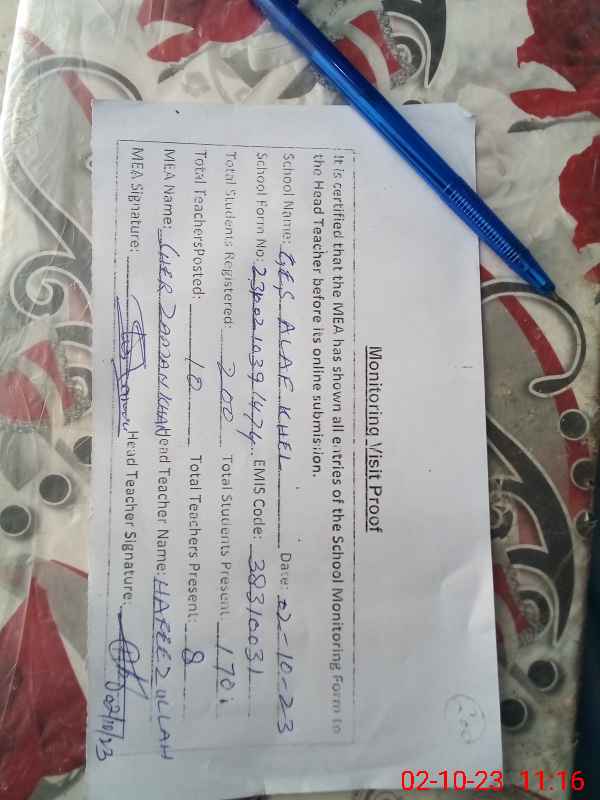 Monitoring Visit Proof
It is certified that the MEA has shown all entries of the School Monitoring Form to
the Head Teacher before its online submission.
School Name: GES ALAF KHEL Date: 02-10-23
School Form No: EMIS Code: 38310031
Total Students Registered: 200 Total Students Present 170
Total TeachersPosted: 10 Total Teachers Present: 8
MEA Name: SHER ZAMAN KHAN Head Teacher Name: HAFEEZ ULLAH
MEA Signature: Head Teacher Signature: 02/10/23
02-10-23 11:16